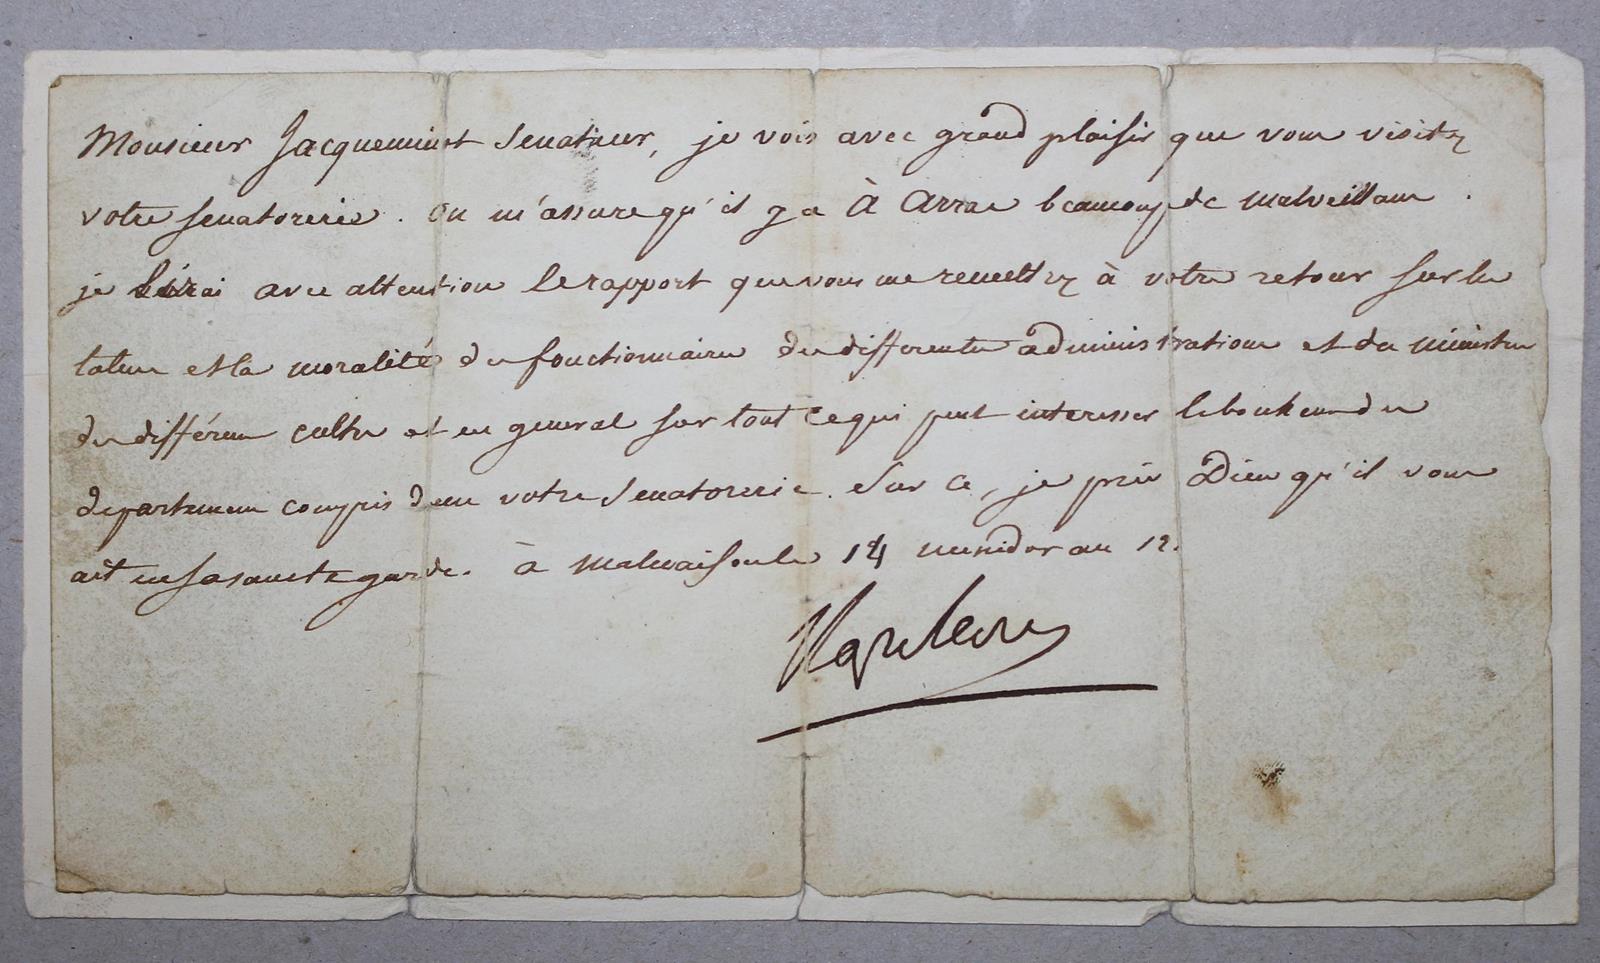 Monsieur Jacqueminot Senateur, je vois avec grand plaisir que vous visitez
votre senatorerie. On m'assure qu'il y a à Arras beaucoup de malveillans.
je lirai avec attention le rapport que vous me remettrez à votre retour sur les
talens et la moralité des fonctionnaires des differentes administrations et des ministres
des différens cultes et en general sur tout ce qui peut interesser le bonheur des
departemens compris dans votre senatorerie. Sur ce, je prie Dieu qu'il vous
ait en sa sainte garde. à Malmaison le 14 messidor an 12.
Napoleon